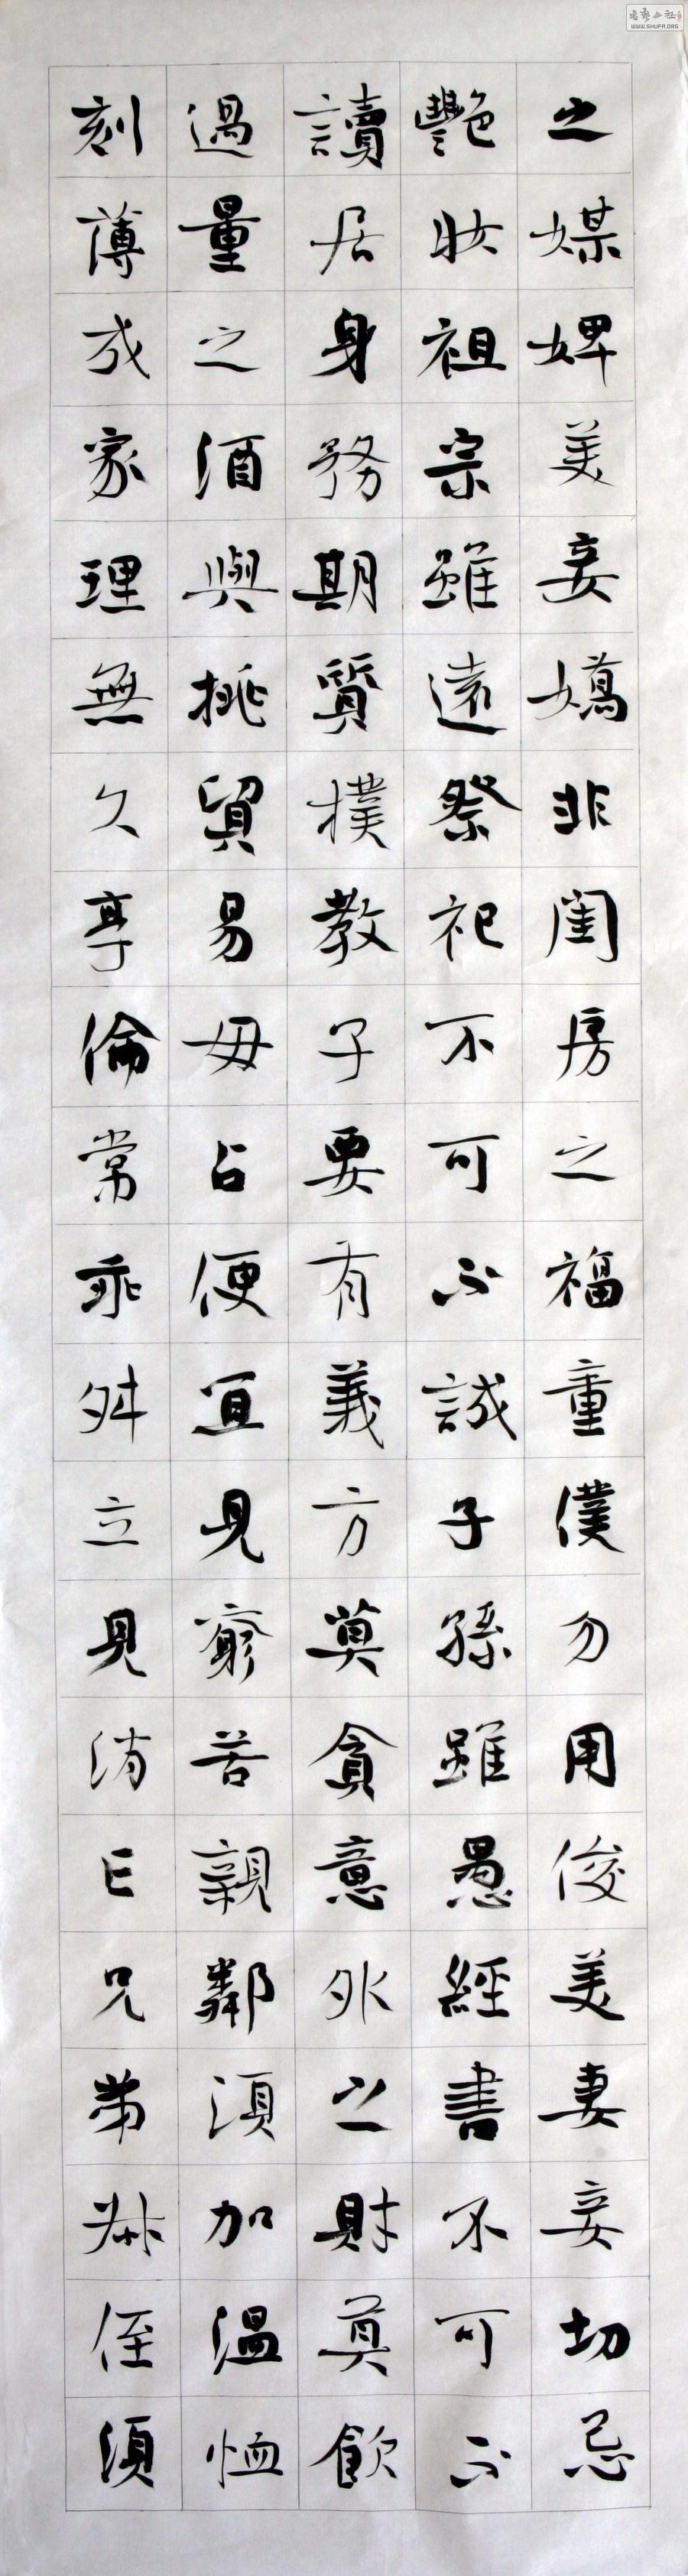 之媒婢美妾嬌非閨房之福童僕勿用俊美妻妾切忌
艷妝祖宗雖遠祭祀不可不誠子孫雖愚經書不可不
讀居身務期質樸教子要有義方莫貪意外之財莫飲
過量之酒與挑貿易毋占便宜見窮苦親鄰須加溫恤
刻薄成家理無久享倫常乖舛立見消亡兄弟叔侄須
WWW.SHUFA.ORG